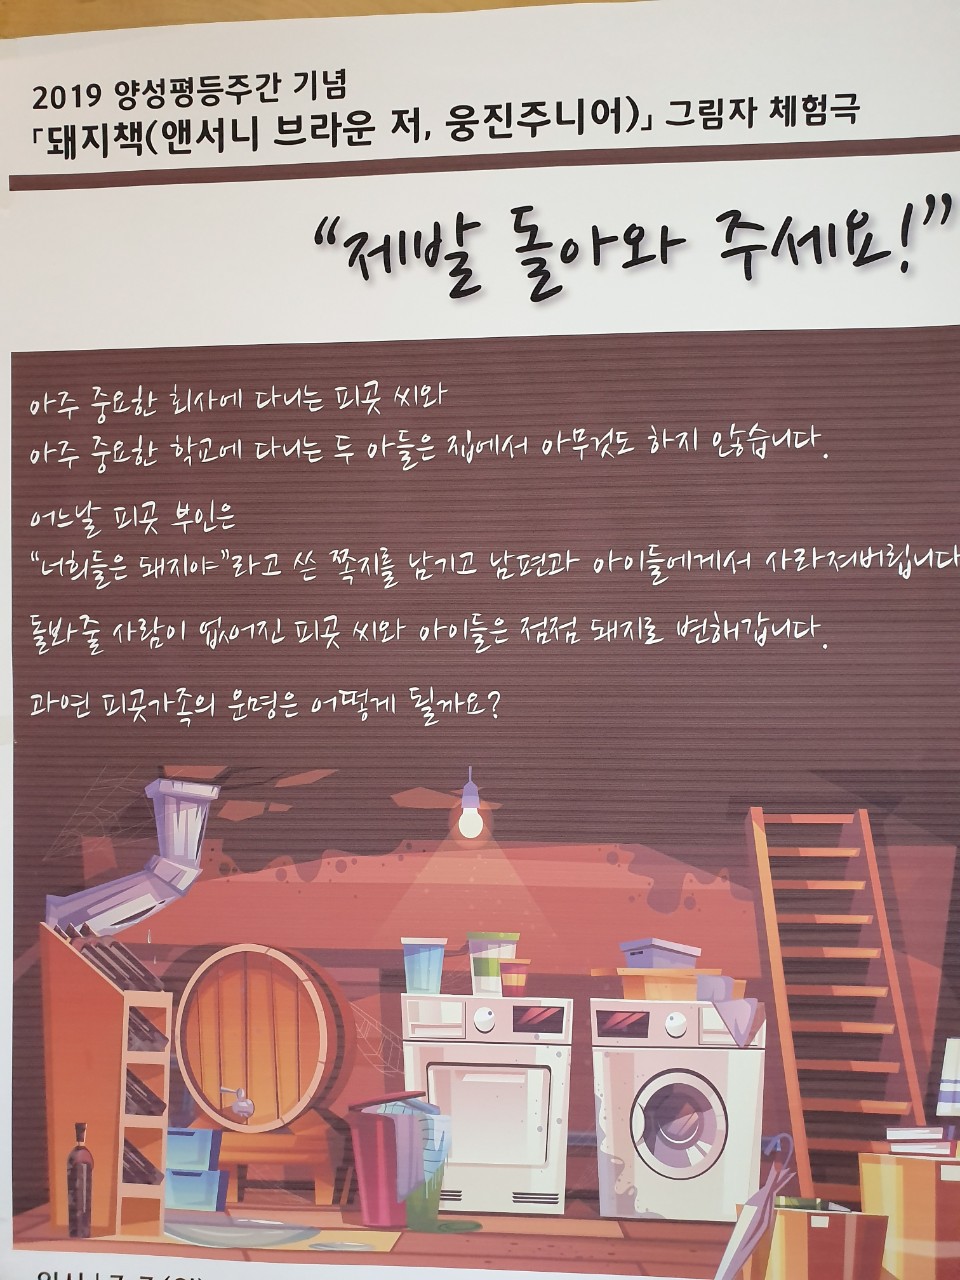 2019 양성평등주간 기념
「돼지책(앤서니 브라운 저, 웅진주니어)」 그림자 체험극
“제발 돌아와 주세요!”
아주 중요한 회사에 다니는 피곳 씨와
아주 중요한 학교에 다니는 두 아들은 집에서 아무것도 하지 않습니다.
어느날 피곳 부인은
“너희들은 돼지야”라고 쓴 쪽지를 남기고 남편과 아이들에게서 사라져버립니다
돌봐줄 사람이 없어진 피곳 씨와 아이들은 점점 돼지로 변해갑니다.
과연 피곳가족의 운명은 어떻게 될까요?